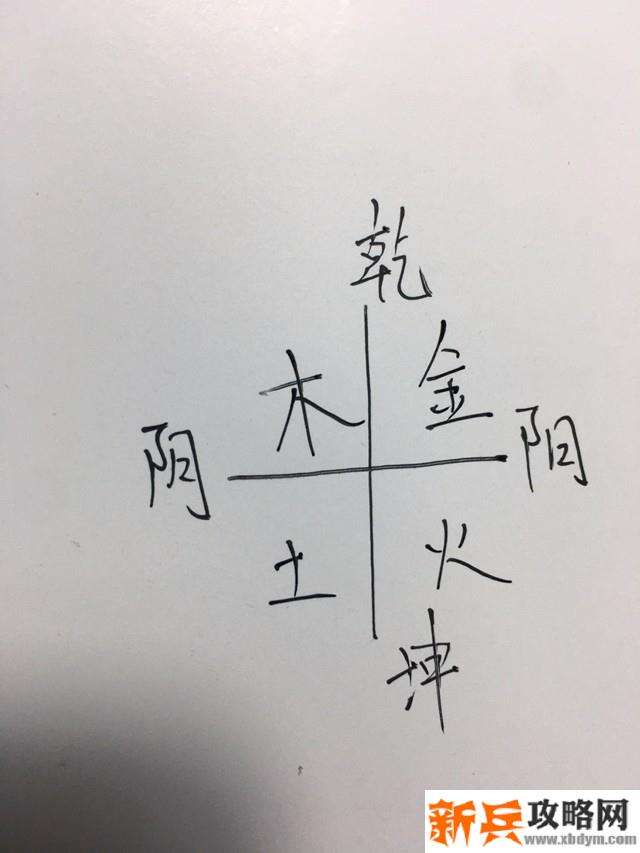 乾
木 金
阴 阳
土 火
坤
新兵攻略网
www.xbdym.com